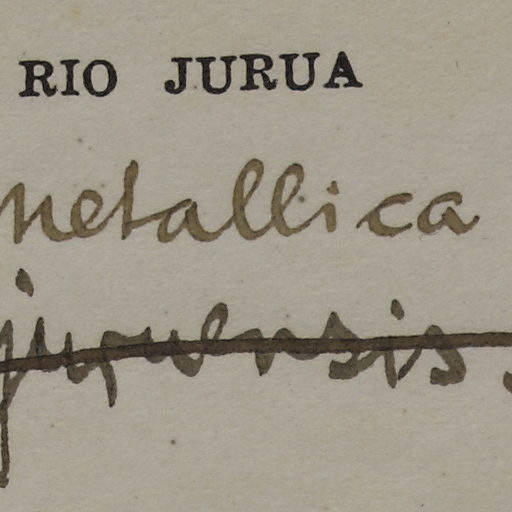 RIO JURUA
metallica
juruensis